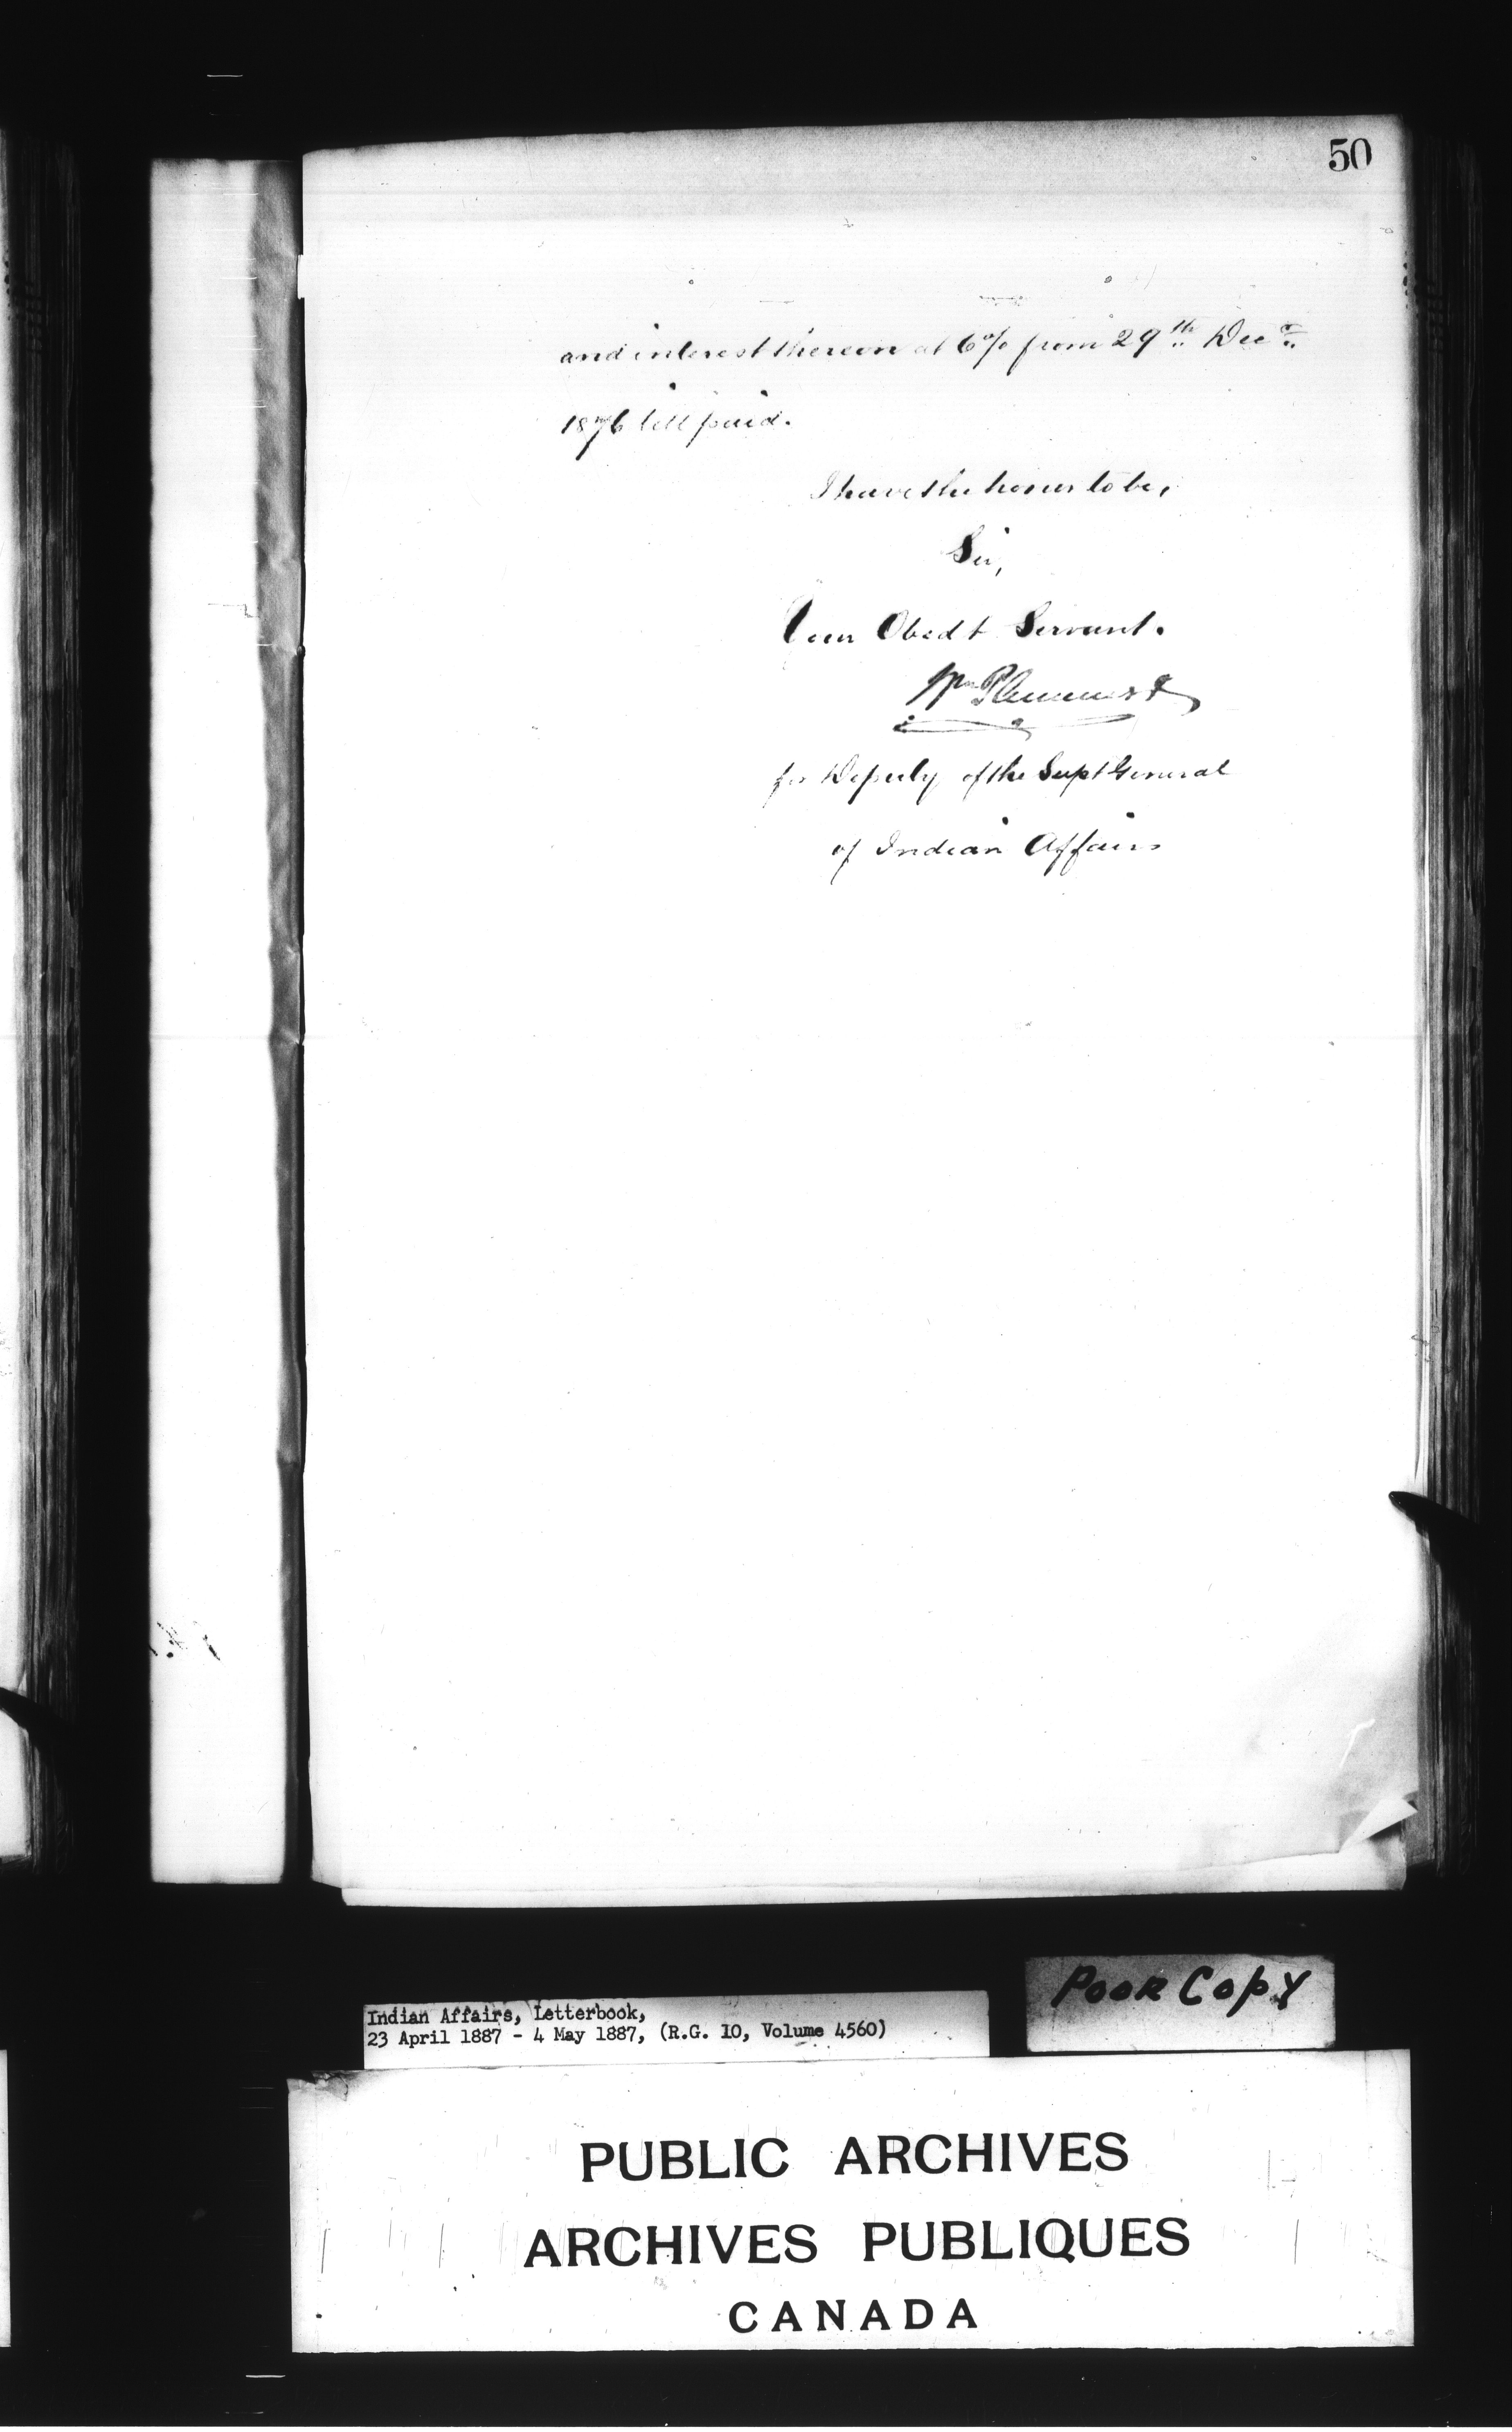 50
and interest thereon at 6% from 29th Decr
1876 till paid.
I have the honor to be,
Sir,
Your Obedt Servant.
Wm Plummer
for Deputy of the Supt General
of Indian Affairs
Poor Copy
Indian Affairs, Letterbook,
23 April 1887 - 4 May 1887, (R.G. 10, Volume 4560)
PUBLIC ARCHIVES
ARCHIVES PUBLIQUES
CANADA